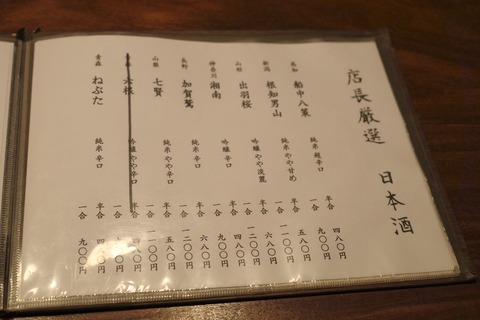 店長厳選 日本酒
高知 船中八策 純米 超辛口 半合 四八〇円
一合 九〇〇円
新潟 根知男山 純米 やや甘め 半合 五八〇円
一合 一一〇〇円
山形 出羽桜 吟醸 やや淡麗 半合 六八〇円
一合 一二〇〇円
神奈川 湘南 吟醸 辛口 半合 四八〇円
一合 九〇〇円
長野 加賀鶯 純米 辛口 半合 六八〇円
一合 一二〇〇円
山梨 七賢 純米 やや辛口 半合 五八〇円
一合 一一〇〇円
六根 吟醸 やや辛口 半合
一合
青森 ねぶた 純米 辛口 半合
一合 九〇〇円